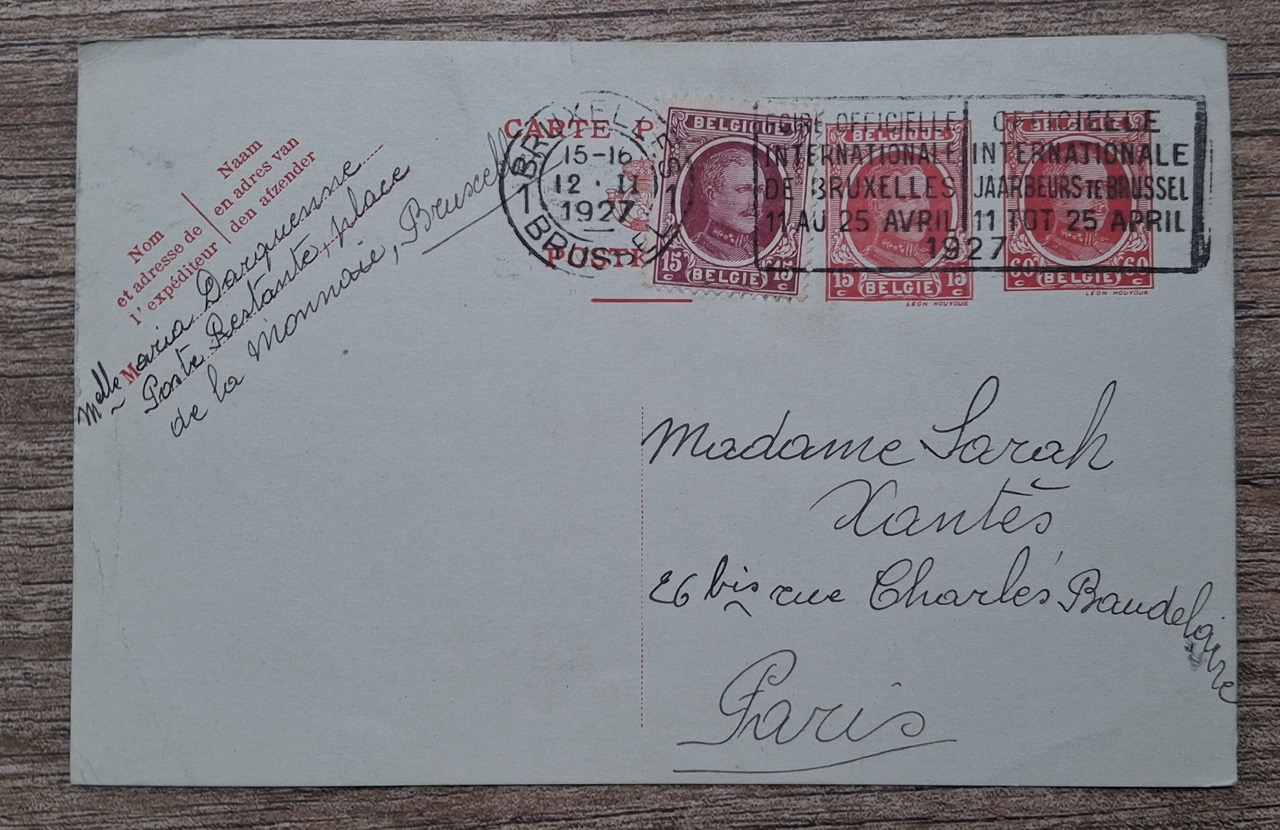 Nom
et adresse de
l'expéditeur
Naam
en adres van
den afzender
Melle Maria Darquenne
Poste Restante, place
de la Monnaie, Bruxelles
CARTE P
POSTK
BRUXELLES
15-16
12 · II
1927
1
BRUSSEL
1
BELGIQUE
15c 15c
BELGIE
BELGIQUE
15c 15c
BELGIE
LEON HOUYOUX
BELGIQUE
60c 60c
BELGIE
LEON HOUYOUX
FOIRE OFFICIELLE
INTERNATIONALE
DE BRUXELLES
11 AU 25 AVRIL
OFFICIEELE
INTERNATIONALE
JAARBEURS TE BRUSSEL
11 TOT 25 APRIL
1927
Madame Sarah
Xantès
26 bis rue Charles Baudelaire
Paris